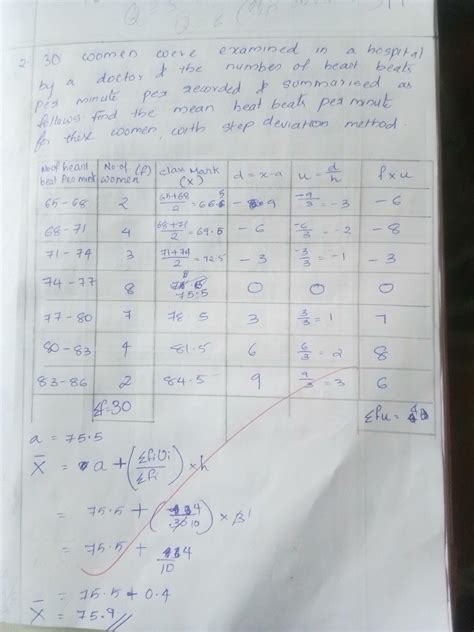 2. 30 women were examined in a hospital
by a doctor & the number of heart beats
per minute per recorded & summarised as
follows find the mean heat beats per minute
for these women, with step deviation method.
No of heart beat Per mint | No of women (f) | class Mark (x) | d = x-a | u = d/h | f x u
65-68 | 2 | 65+68/2 = 66.5 | -9 | -9/3 = -3 | -6
68-71 | 4 | 68+71/2 = 69.5 | -6 | -6/3 = -2 | -8
71-74 | 3 | 71+74/2 = 72.5 | -3 | -3/3 = -1 | -3
74-77 | 8 | 75.5 | 0 | 0 | 0
77-80 | 7 | 78.5 | 3 | 3/3 = 1 | 7
80-83 | 4 | 81.5 | 6 | 6/3 = 2 | 8
83-86 | 2 | 84.5 | 9 | 9/3 = 3 | 6
Σf=30 | Σfu = 4
a = 75.5
X̄ = a + (ΣfiUi/Σfi) × h
= 75.5 + (4/30 10) × 3 1
= 75.5 + 4/10
= 75.5 + 0.4
X̄ = 75.9